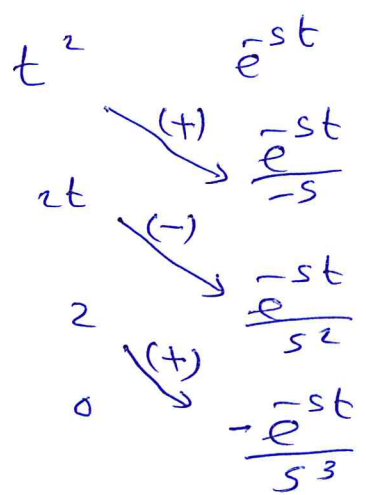 t² e^{-st}
(+)
2t e^{-st}/-s
(-)
2 e^{-st}/s²
(+)
0 -e^{-st}/s³